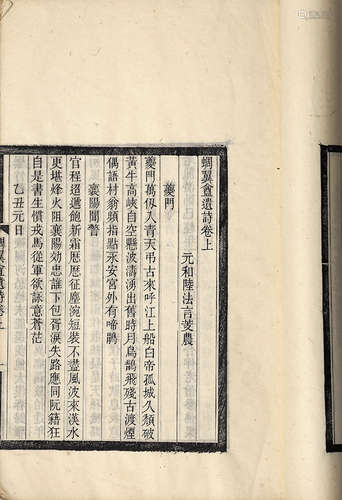 蜩翼盦遺詩卷上
元和陸法言菱農
夔門
夔門萬仭入青天弔古來呼江上船白帝孤城久頹破
黃牛高峽自空懸波濤湧出舊時月烏鵲飛殘古渡煙
偶語村翁頻指點永安宮外有啼鵑
襄陽聞警
官程迢遞飽新霜歷歷征塵涴短裝不盡風波來漢水
更堪烽火阻襄陽効忠誰下包胥淚失路應同阮籍狂
自是書生慣戎馬從軍欲詠意蒼茫
乙丑元日